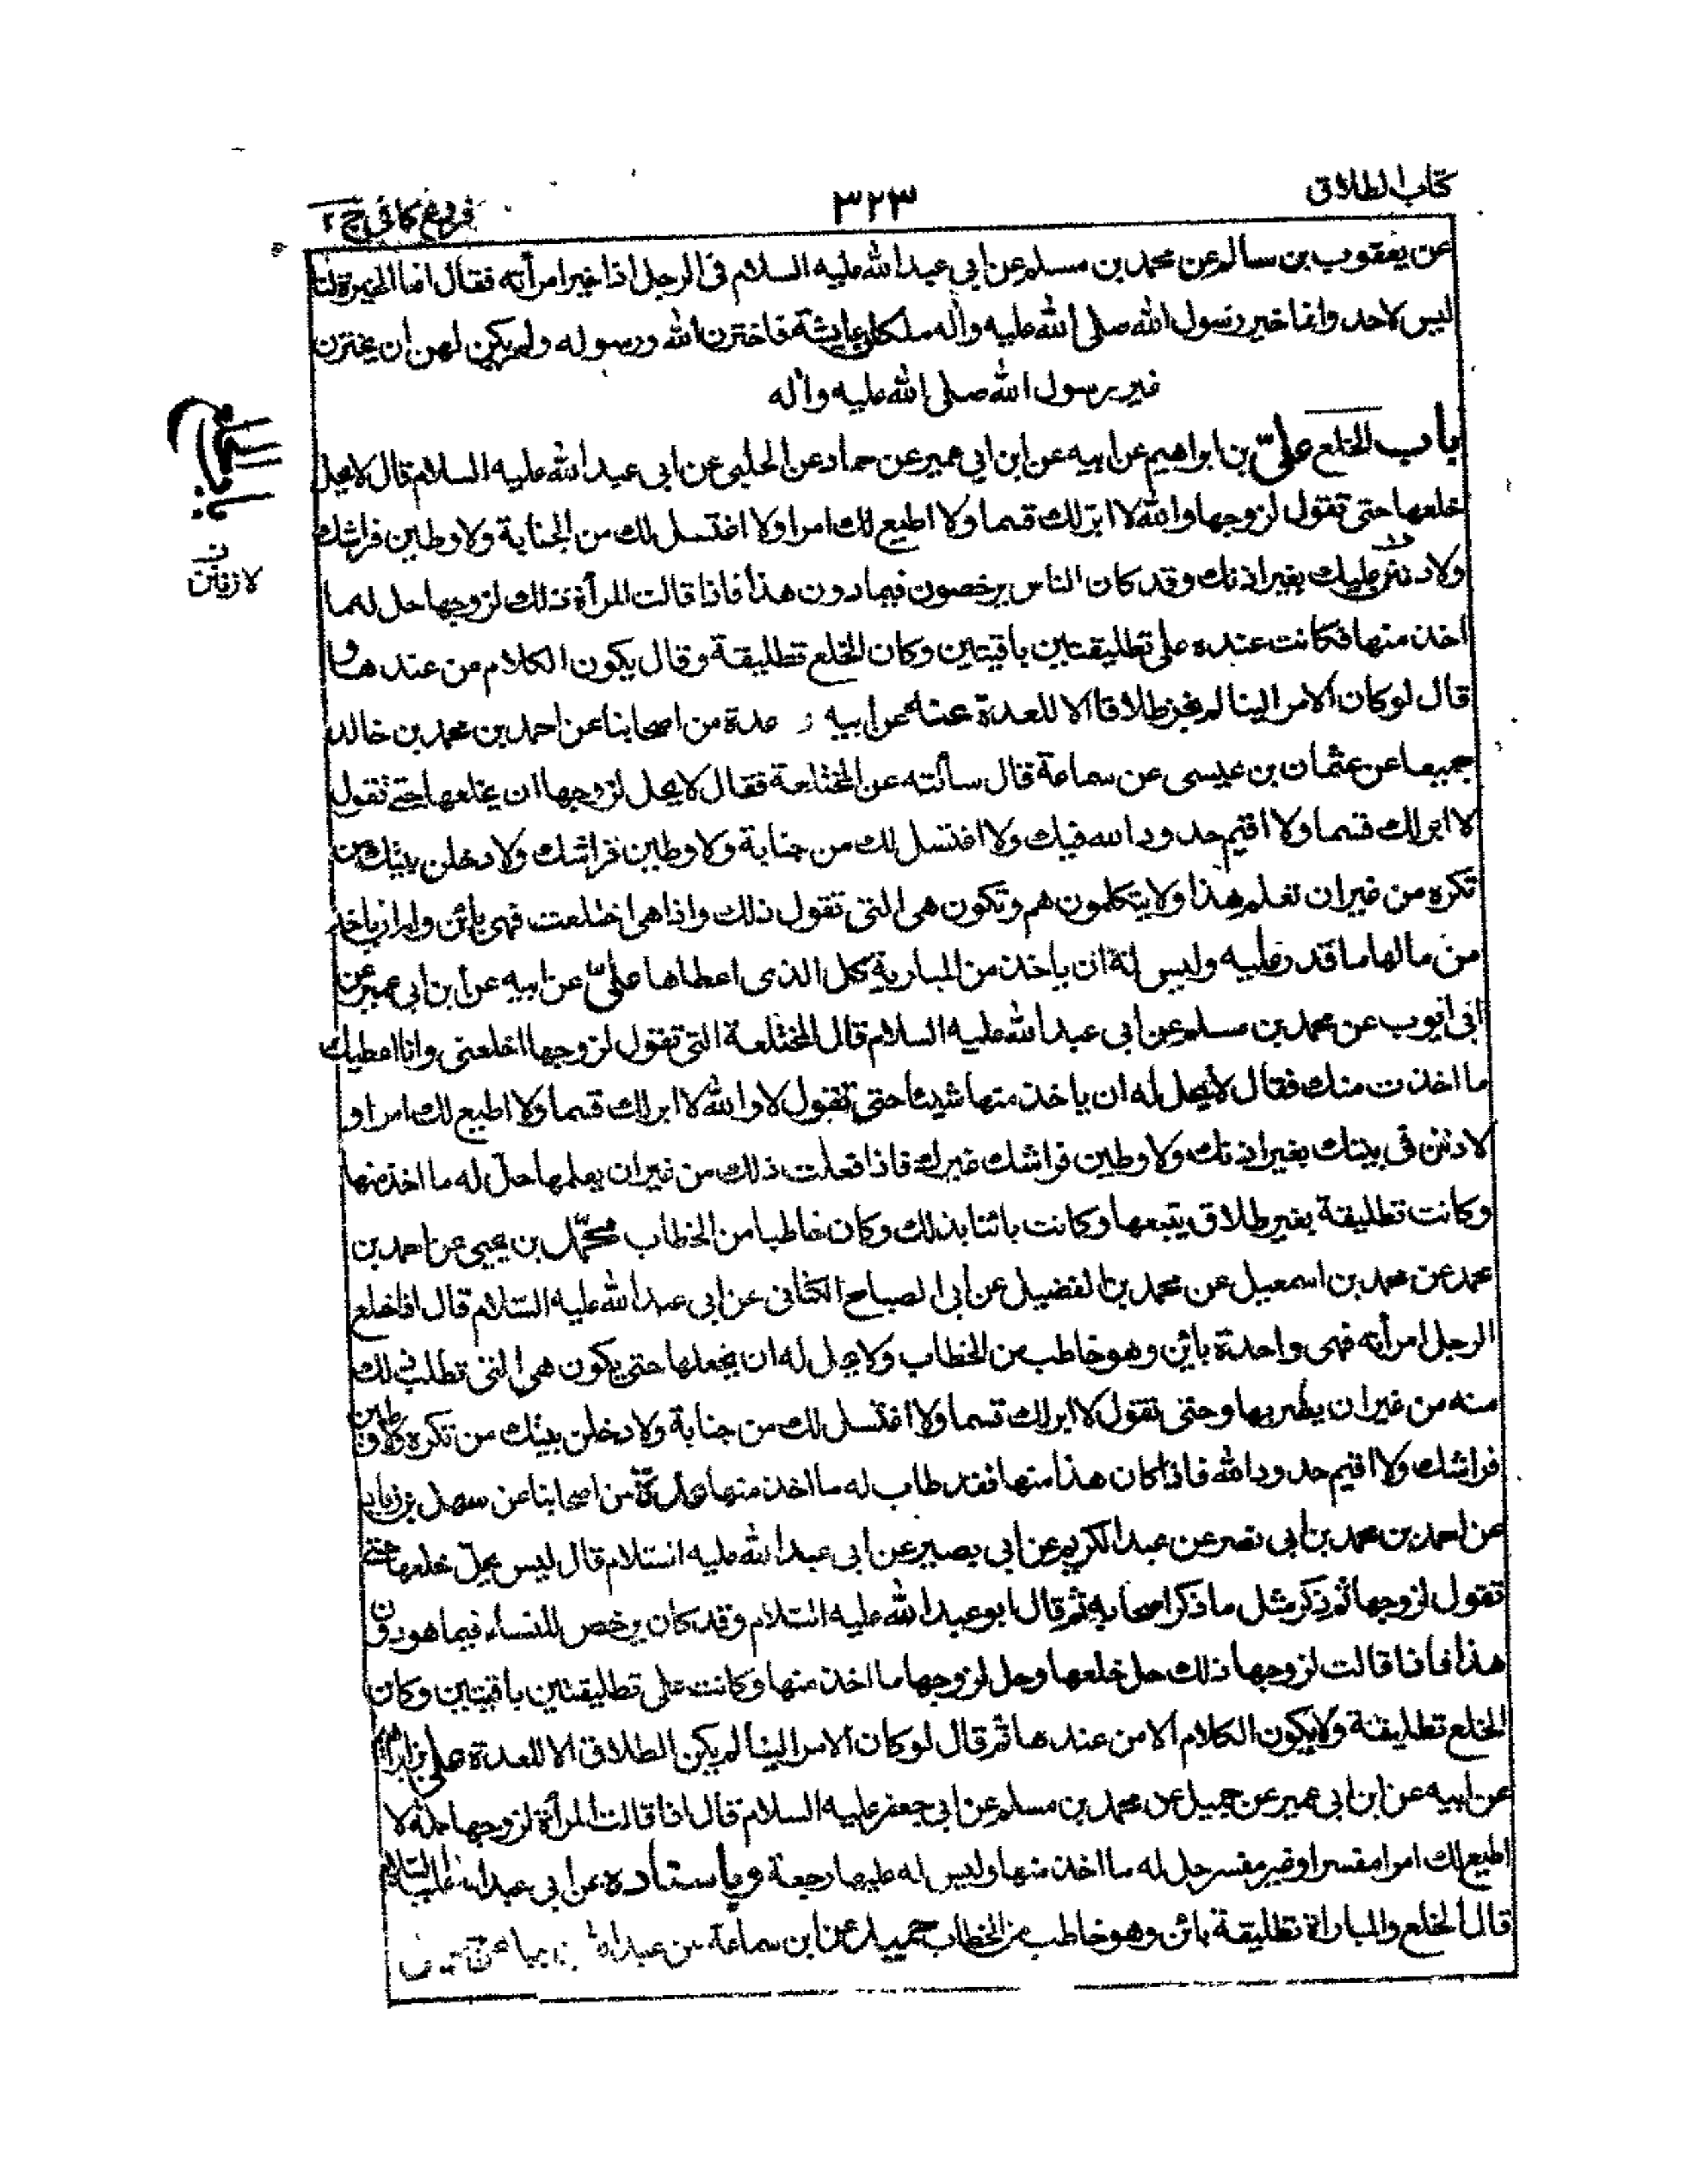 كتاب الطلاق
٣٢٣
فروع كافى ج ٢
عن يعقوب بن سالم عن محمد بن مسلم عن ابي عبد الله عليه السلام فى الرجل اذا خير امرأته فقال انما الخيرة لنا
ليس لاحد وانما خير رسول الله صلى الله عليه وآله لمكان عايشة فاخترن الله ورسوله ولم يكن لهن ان يخترن
غير رسول الله صلى الله عليه وآله
باب الخلع علىّ بن ابراهيم عن ابيه عن ابن ابي عمير عن حماد عن الحلبي عن ابى عبد الله عليه السلام قال لا يحل
خلعها حتى تقول لزوجها والله لا ابرّ لك قسما ولا اطيع لك امرا ولا اغتسل لك من الجنابة ولاوطين فراشك
ولاد نن عليك بغير اذنك وقد كان الناس يرخصون فيما دون هذا فاذا قالت المرأة ذلك لزوجها حل له ما
اخذ منها فكانت عنده على تطليقتين باقيتين وكان الخلع تطليقة وقال يكون الكلام من عندها و
قال لو كان الامر الينا لم نجز طلاقا الا للعدة عنه عن ابيه و عدة من اصحابنا عن احمد بن محمد بن خالد
جميعا عن عثمان بن عيسى عن سماعة قال سألته عن المختلعة فقال لا يحل لزوجها ان يخلعها حتى تقول
لا ابر لك قسما ولا اقيم حدود الله فيك ولا اغتسل لك من جنابة ولاوطين فراشك ولادخلن بيتك من
تكره من غير ان تعلم هذا ولا يتكلمون هم وتكون هى التى تقول ذلك واذا هى اختلعت فهى بائن وله ان ياخذ
من مالها ما قدر عليه وليس له ان ياخذ من المبارية كل الذى اعطاها علىّ عن ابيه عن ابن ابي عمير عن
ابى ايوب عن محمد بن مسلم عن ابى عبد الله عليه السلام قال المختلعة التى تقول لزوجها اخلعنى وانا اعطيك
ما اخذت منك فقال لا يحل له ان ياخذ منها شيئا حتى تقول لا والله لا ابر لك قسما ولا اطيع لك امرا و
لاذنن فى بيتك بغير اذنك ولاوطين فراشك غيرك فاذا فعلت ذلك من غير ان يعلمها حلّ له ما اخذ منها
وكانت تطليقة بغير طلاق يتبعها وكانت بائنا بذلك وكان خاطبا من الخطاب محمّد بن يحيى عن احمد بن
محمد عن محمد بن اسمعيل عن محمد بن الفضيل عن ابى الصباح الكنانى عن ابى عبد الله عليه السّلام قال اذا خلع
الرجل امرأته فهى واحدة باين وهو خاطب من الخطاب ولا يحل له ان يخلعها حتى يكون هى التى تطلب ذلك
منه من غير ان يضر بها وحتى تقول لا ابر لك قسما ولا اغتسل لك من جنابة ولادخلن بيتك من تكره ولاوطين
فراشك ولا اقيم حدود الله فاذا كان هذا منها فقد طاب له ما اخذ منها عدّة من اصحابنا عن سهل بن زياد
عن احمد بن محمد بن ابى نصر عن عبد الكريم عن ابى بصير عن ابى عبد الله عليه السلام قال ليس يحلّ خلعها حتى
تقول لزوجها ثم ذكر مثل ما ذكر اصحابه ثم قال ابو عبد الله عليه السّلام وقد كان يرخص للنساء فيما هو دون
هذا فاذا قالت لزوجها ذلك حل خلعها وحل لزوجها ما اخذ منها وكانت على تطليقتين باقيتين وكان
الخلع تطليقة ولا يكون الكلام الا من عندها ثم قال لو كان الامر الينا لم يكن الطلاق الا للعدة على بن ابراهيم
عن ابيه عن ابن ابى عمير عن جميل عن محمد بن مسلم عن ابى جعفر عليه السلام قال اذا قالت المرأة لزوجها جملة لا
اطيع لك امرا مفسرا او غير مفسر حل له ما اخذ منها وليس له عليها رجعة وباسناده عن ابى عبد الله عليه السّلام
قال الخلع والمباراة تطليقة بائن وهو خاطب من الخطاب حميد عن ابن سماعة عن عبد الله